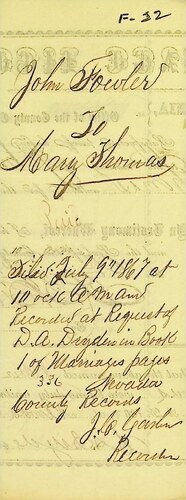 F-32
John Fowler
To
Mary Thomas
Filed July 9th 1867 at
10 ock A M and
Recorded at Request of
D. A. Dryden in Book
1 of Marriages pages
336 Nevada
County Records
J. C. Garber
Recorder